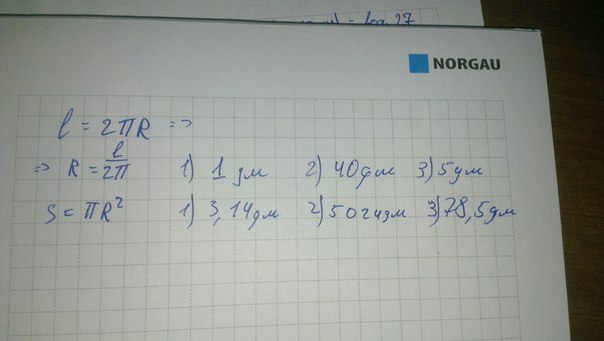 NORGAU
l = 2πR =>
=> R = l/2π 1) 1 дм 2) 40дм 3) 5дм
S = πR² 1) 3,14дм 2) 5024дм 3) 78,5дм